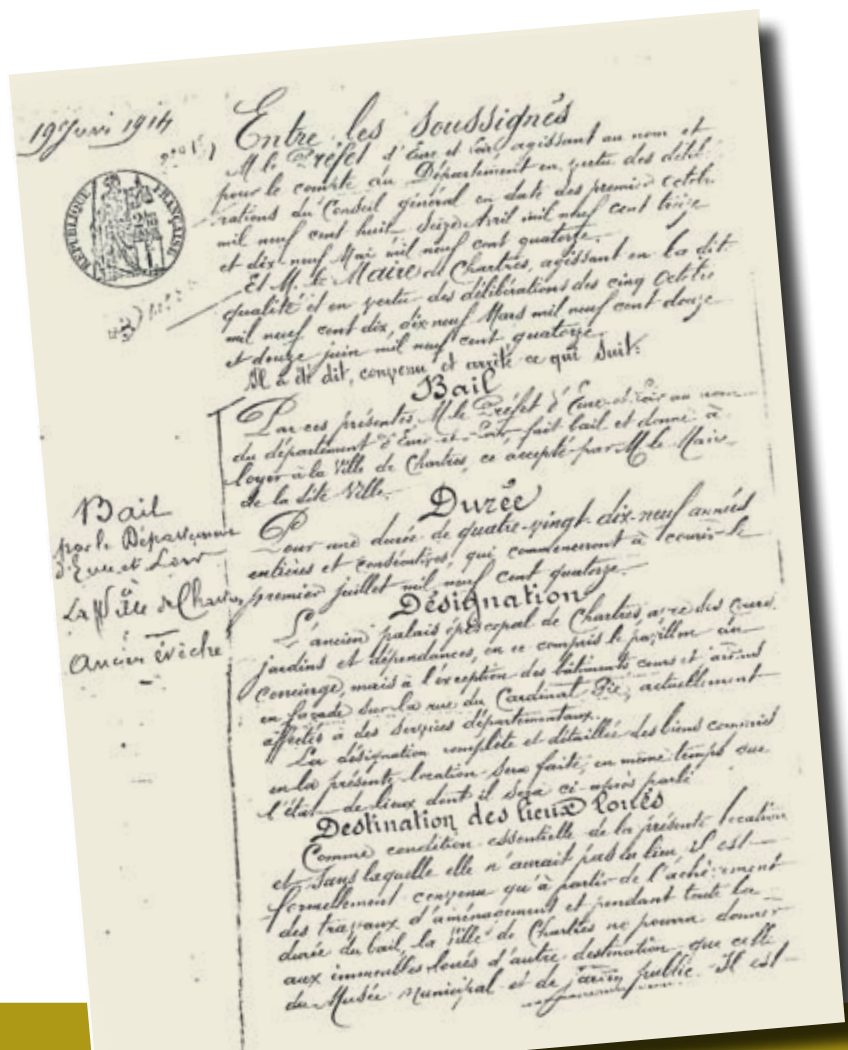 19 Juin 1914
RÉPUBLIQUE FRANÇAISE
Entre les soussignés
M. le Préfet d'Eure et Loir agissant au nom et
pour le compte du Département en vertu des délibé-
rations du Conseil général en date des premier octobre
mil neuf cent huit, seize Avril mil neuf cent treize
et dix neuf Mai mil neuf cent quatorze.
Et M. le Maire de Chartres, agissant en la dite
qualité et en vertu des délibérations des cinq Octobre
mil neuf cent dix, dix neuf Mars mil neuf cent douze
et douze juin mil neuf cent quatorze.
Il a été dit, convenu et arrêté ce qui suit:
Bail
Par ces présentes, M. le Préfet d'Eure-et-Loir au nom
du département d'Eure-et-Loir, fait bail et donne à
loyer à la Ville de Chartres, ce accepté par M. le Maire
de la dite Ville.
Durée
Pour une durée de quatre-vingt-dix-neuf années
entières et consécutives, qui commenceront à courir le
premier juillet mil neuf cent quatorze.
Bail
par le Département
d'Eure et Loir
à
La Ville de Chartres
Ancien évêché
Désignation
L'ancien palais épiscopal de Chartres, avec des cours,
jardins et dépendances, en ce compris le pavillon du
concierge, mais à l'exception des bâtiments cours et
en façade sur la rue du Cardinal Pie, actuellement
affectés à des services départementaux.
La désignation complète et détaillée des biens compris
en la présente location sera faite, en même temps que
l'état de lieux dont il sera ci-après parlé
Destination des lieux loués
Comme condition essentielle de la présente location
et sans laquelle elle n'aurait pas eu lieu, il est
formellement convenu qu'à partir de l'achèvement
des travaux d'aménagement et pendant toute la
durée du bail, la Ville de Chartres ne pourra donner
aux immeubles loués d'autre destination que celle
du Musée Municipal et de jardin public. Il est